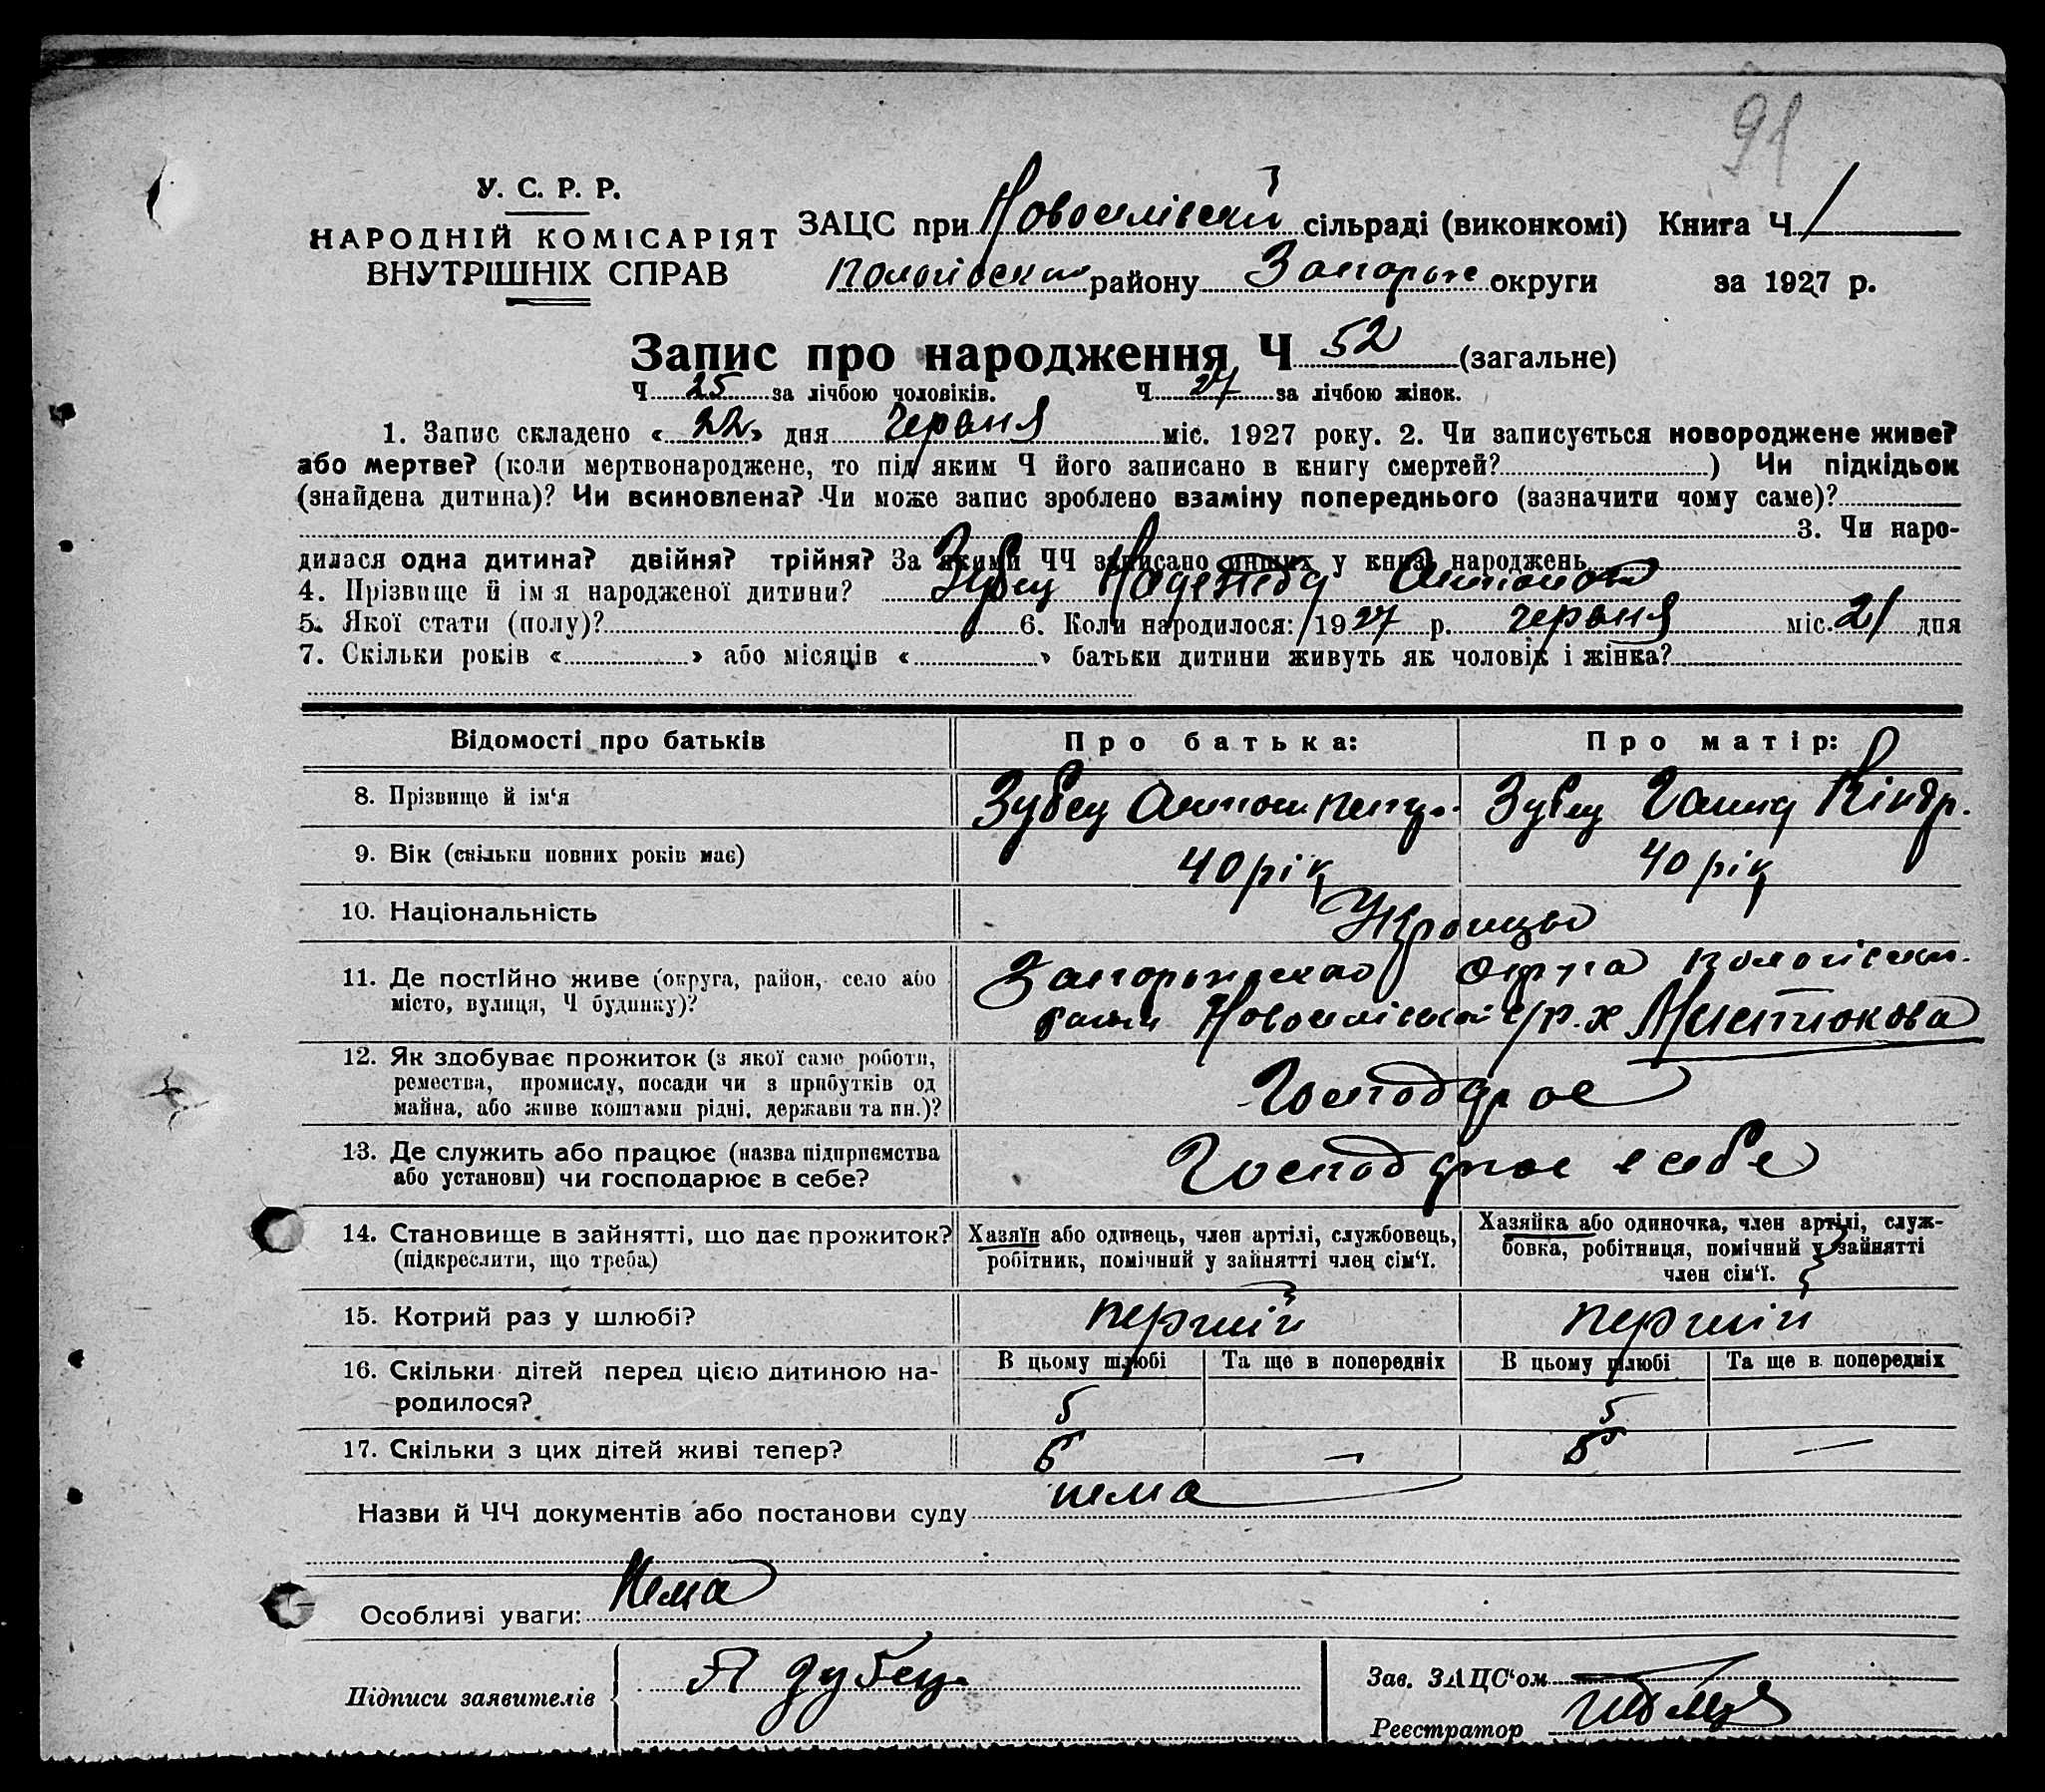 91
У. С. Р. Р.
НАРОДНІЙ КОМІСАРІЯТ
ВНУТРІШНІХ СПРАВ
ЗАЦС при Новоселівскій сільраді (виконкомі) Книга Ч 1
району Запорож округи за 1927 р.
Запис про народження Ч 52 (загальне)
Ч 25 за лічбою чоловіків. Ч 27 за лічбою жінок.
1. Запис складено «22» дня червня міс. 1927 року. 2. Чи записується новороджене живе?
або мертве? (коли мертвонароджене, то під яким Ч його записано в книгу смертей?) Чи підкідьок
(знайдена дитина)? Чи всиновлена? Чи може запис зроблено взаміну попереднього (зазначити чому саме)?
3. Чи наро-
дилася одна дитина? двійня? трійня? За якими ЧЧ записано инших у книзі народжень
4. Прізвище й ім я народженої дитини? Зубец Надежда Антонова
5. Якої стати (полу)? 6. Коли народилося: 1927 р. червня міс. 21 дня
7. Скільки років « » або місяців « » батьки дитини живуть як чоловік і жінка?
Відомості про батьків Про батька: Про матір:
8. Прізвище й ім‘я Зубец Антон Зубец Ганна Кіндр.
9. Вік (скільки повних років має) 40 рік 40 рік
10. Національність Украинцы
11. Де постійно живе (округа, район, село або Запорожская округа
місто, вулиця, Ч будинку)? Новоселівской с/р. х
12. Як здобуває прожиток (з якої саме роботи,
ремества, промислу, посади чи з прибутків од
майна, або живе коштами рідні, держави та ин.)? Господарює
13. Де служить або працює (назва підприємства
або установи) чи господарює в себе? Господарює в себе
14. Становище в зайнятті, що дає прожиток? Хазяїн або одинець, член артілі, службовець, Хазяйка або одиночка, член артілі, служ-
(підкреслити, що треба) робітник, помічний у зайнятті член сім‘ї. бовка, робітниця, помічний у зайнятті
член сім‘ї.
15. Котрий раз у шлюбі? першій першій
16. Скільки дітей перед цією дитиною на- В цьому шлюбі Та ще в попередніх В цьому шлюбі Та ще в попередніх
родилося? 5 5
17. Скільки з цих дітей живі тепер? — —
Назви й ЧЧ документів або постанови суду нема
Особливі уваги: Нема
Підписи заявителів А Зубец
Зав. ЗАЦС‘ом
Реєстратор